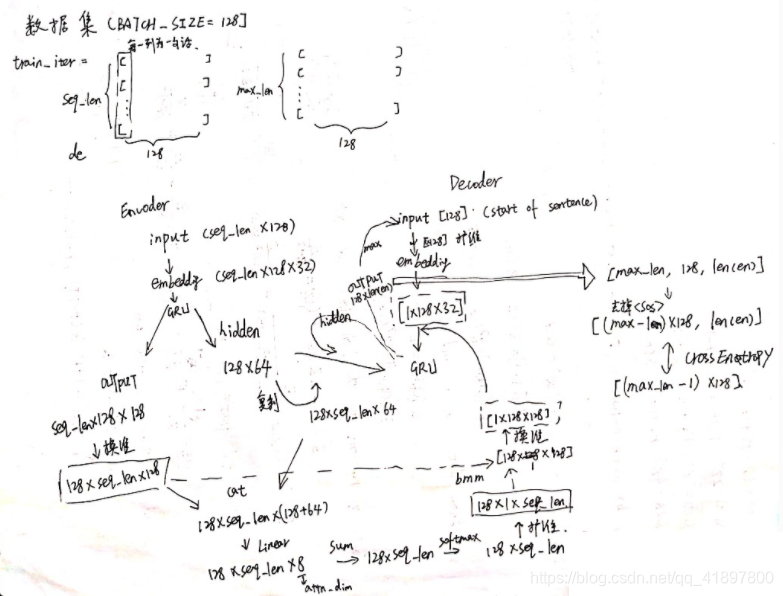 数据集 (BATCH_SIZE=128]
每一列为一句话.
train_iter =
seq_len
128
max_len
128
de
Encoder
input (seq_len ×128)
embeddig (seq_len×128×32)
GRU
hidden
128×64
复制
128×seq_len×64
output
seq_len×128×128
换维
128×seq_len×128
cat
128×seq_len×(128+64)
Linear
128×seq_len×8
attn_dim
sum
128×seq_len
softmax
128×seq_len
扩维.
128×1×seq_len
bmm
[128×1×128]
换维
[1×128×128],
Decoder
input [128]. (start of sentence)
[128] 扩维
embeddig
[1×128×32]
GRU
hidden
output
128×len(en)
max
[max_len, 128, len(en)]
去掉<sos>
[(max-len)×128, len(en)]
Cross Enotropy
[(max_len-1)×128].
https://blog.csdn.net/qq_41897800